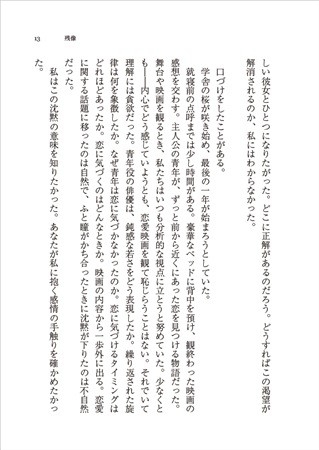 13　残像
しい彼女とひとつになりたがった。どこに正解があるのだろう。どうすればこの渇望が
解消されるのか、私にはわからなかった。
口づけをしたことがある。
学舎の桜が咲き始め、最後の一年が始まろうとしていた。
就寝前の点呼までは少し時間がある。豪華なベッドに背中を預け、観終わった映画の
感想を交わす。主人公の青年が、ずっと前から近くにあった恋を見つける物語だった。
舞台や映画を観るとき、私たちはいつも分析的な視点に立とうと努めていた。少なくと
も――内心でどう感じていようとも、恋愛映画を観て恥じらうことはない。それでいて
理解には貪欲だった。青年役の俳優は、鈍感な若さをどう表現したか。繰り返された旋
律は何を象徴したか。なぜ青年は恋に気づかなかったのか。恋に気づけるタイミングは
どれほどあったか。恋に気づくのはどんなときか。映画の内容から一歩外に出る。恋愛
に関する話題に移ったのは自然で、ふと瞳がかち合ったときに沈黙が下りたのは不自然
だった。
私はこの沈黙の意味を知りたかった。あなたが私に抱く感情の手触りを確かめたかっ
た。